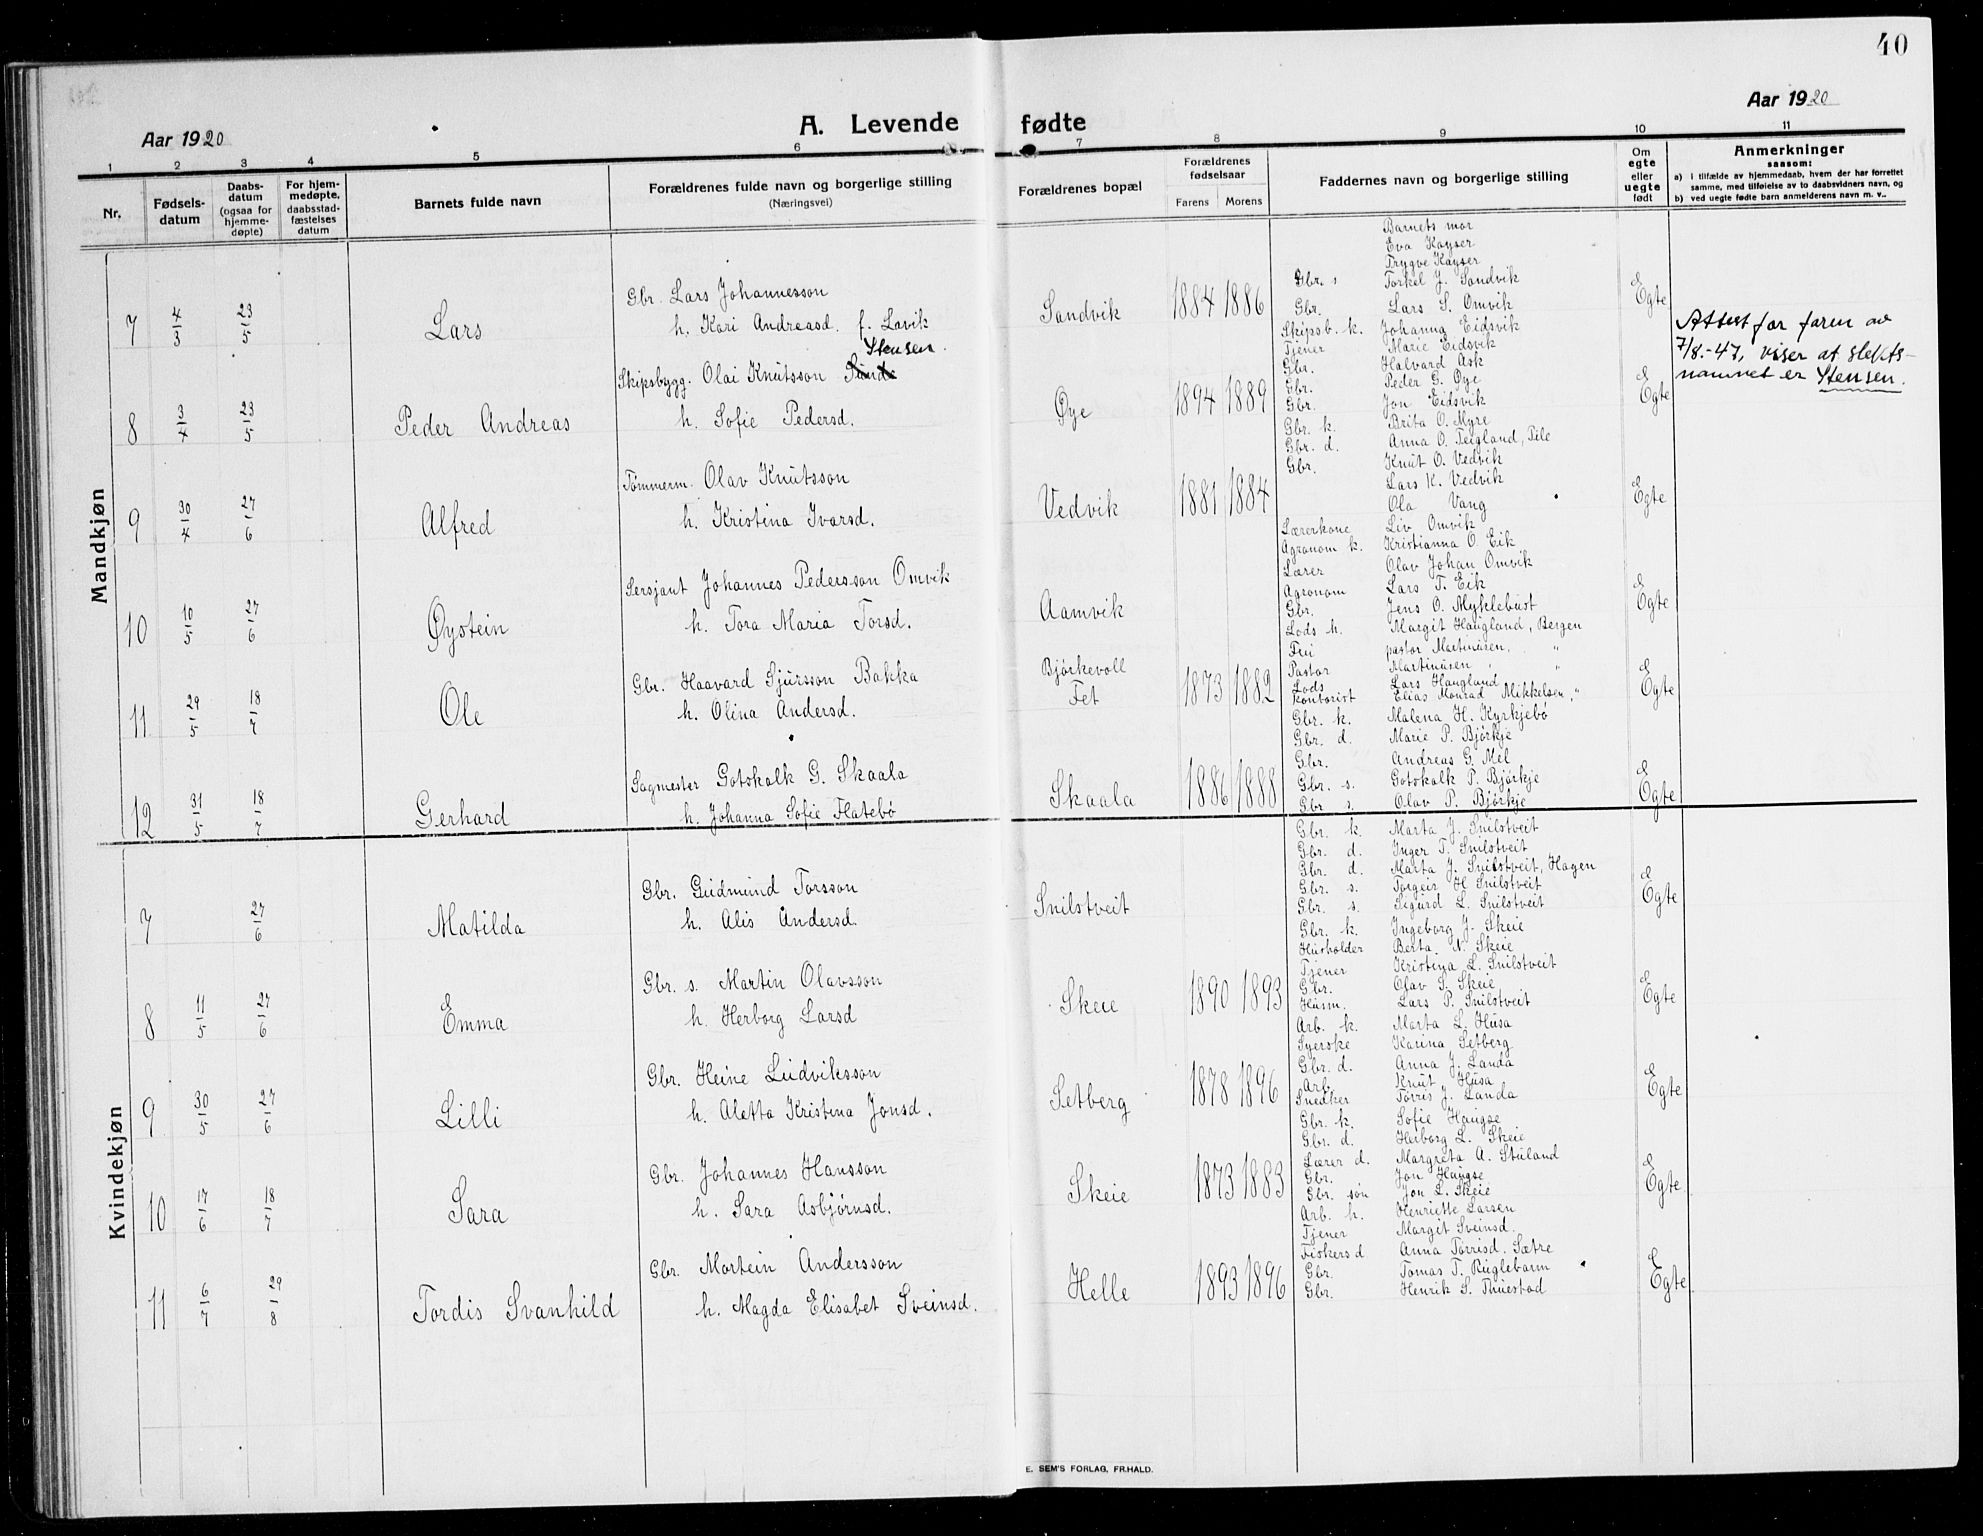 40
Aar 1920
A. Levende fødte
Aar 1920
1 2 3 4 5 6 7 8 9 10 11
Nr.
Fødsels-
datum
Daabs-
datum
(ogsaa for
hjemme-
døpte)
For hjem-
medøpte,
daabsstad-
fæstelses
datum
Barnets fulde navn
Forældrenes fulde navn og borgerlige stilling
(Næringsvei)
Forældrenes bopæl
Forældrenes
fødselsaar
Farens Morens
Faddernes navn og borgerlige stilling
Om
egte
eller
uegte
født
Anmerkninger
saasom:
a) i tilfælde av hjemmedaab, hvem der har forrettet
samme, med tilføielse av to daabsvidners navn, og
b) ved uegte fødte barn anmelderens navn m. v..
Mandkjøn
7 4/3 23/5 Lars
Gbr. Lars Johannesson
h. Kari Andreasd. f. Lavik
Sandvik 1884 1886 Egte
Barnets mor
Eva Kayser
Trygve Kayser
Gbr. s Torkel J. Sandvik
Gbr. Lars S. Omvik
8 3/4 23/5 Peder Andreas
Stensen.
Skipsbygg. Olai Knutsson Sunde
h. Sofie Pedersd.
Øye 1894 1889 Egte
Skipsb. k. Johanna Eidsvik
Tjener Marie Eidsvik
Gbr. Halvard Ask
Gbr. Peder G. Øye
Gbr. Jon Eidsvik
Attest for faren av
7/8.-47, viser at slekts-
namnet er Stensen.
9 30/4 27/6 Alfred
Tømmerm. Olav Knutsson
h. Kristina Ivarsd.
Vedvik 1881 1884 Egte
Gbr. k. Brita O. Myre
Gbr. d. Anna O. Teigland, Tile
Gbr. Knut O. Vedvik
Lars K. Vedvik
Ola Vang
10 10/5 27/6 Øystein
Sersjant Johannes Pedersson Omvik
h. Tora Maria Torsd.
Aamvik Egte
Lærerkone Liv Omvik
Agronom k. Kristianna O. Eik
Lærer Olav Johan Omvik
Agronom Lars T. Eik
Gbr. Jens O. Myklebust
11 29/5 18/7 Ole
Gbr. Haavard Sjursson Bakka
h. Olina Andersd.
Bjørkevoll
Fet 1873 1882 Egte
Lods h. Margit Haugland, Bergen
Fru pastor Martinusen, "
Pastor Martinusen " "
Lods Lars Haugland
Kontorist Elias Monrad Mikkelsen, "
12 31/5 18/7 Gerhard
Sagmester Gotskalk G. Skaala
h. Johanna Sofie Flatebø
Skaala 1886 1888 Egte
Gbr. k. Malena H. Kyrkjebø
Gbr. d. Marie P. Bjørkje
Gbr. Andreas G. Mel
Gbr. s. Gotskalk P. Bjørkje
Gbr s. Olav P. Bjørkje
Kvindekjøn
7 27/6 Matilda
Gbr. Gudmund Torsson
h. Alis Andersd.
Snilstveit Egte
Gbr. k. Marta J. Snilstveit
Gbr. d. Inger T. Snilstveit
Gbr. d. Marta J. Snilstveit, Hagen
Gbr. s. Torgeir H Snilstveit
Gbr. s. Sigurd L. Snilstveit
8 11/5 27/6 Emma
Gbr. s. Martin Olavsson
h. Herborg Larsd
Skeie 1890 1893 Egte
Gbr. k. Ingeborg J. Skeie
Husholder Berta N. Skeie
Tjener Kristina L. Snilstveit
Gbr. Olav S. Skeie
Husm. Lars P. Snilstveit
9 30/5 27/6 Lilli
Gbr. Heine Ludviksson
h. Aletta Kristina Jonsd.
Setberg 1878 1896 Egte
Arb. k. Marta L. Husa
Syerske Karina Setberg
Gbr. d. Anna J. Landa
Arb. Knut Husa
Snedker Torris J. Landa
10 17/6 18/7 Sara
Gbr. Johannes Hansson
h. Sara Asbjørnsd.
Skeie 1873 1883 Egte
Gbr. k. Sofie Haugse
Gbr. d. Herborg L. Skeie
Lærer d. Margreta A. Stuland
Gbr. Jon Haugse
Gbr. søn Jon L. Skeie
11 6/7 29/8 Tordis Svanhild
Gbr. Mortein Andersson
h. Magda Elisabet Sveinsd.
Helle 1893 1896 Egte
Arb. h. Henriette Larsen
Tjener Margit Sveinsd.
Fiskers d Anna Torrisd. Sætre
Gbr. Tomas T. Ruglebarm
Gbr. Henrik S. Thuestad
E. SEM'S FORLAG, FR.HALD.